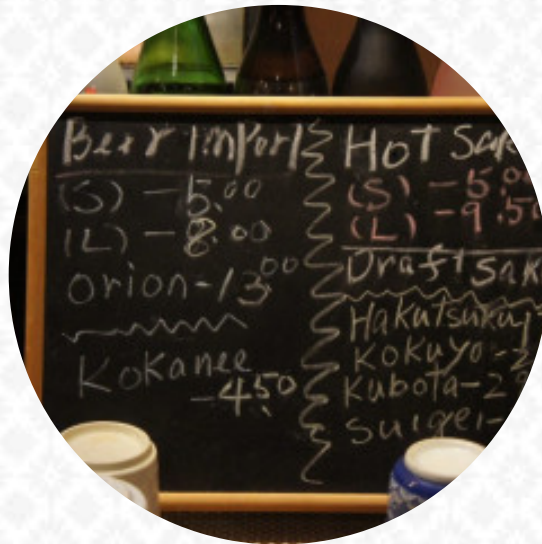 Beer Import
(S) - 5.00
(L) - 8.00
orion - 13.00
Kokanee
- 4.50
HOT Sak
(S) - 5.0
(L) - 9.50
Draft sak
Hakutsuru
KOKUYO - 2
Kubota - 2
suigei -